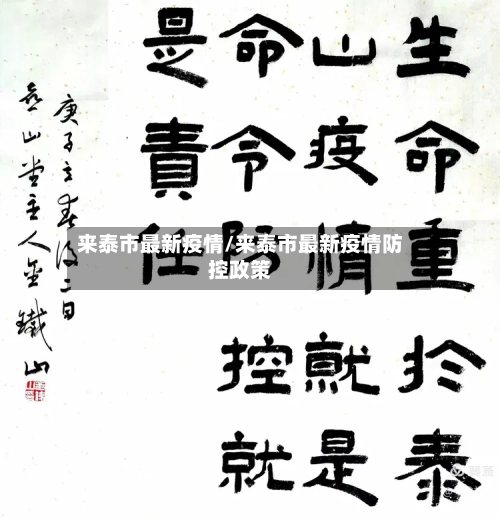 生命重於泰
山疫情就是
命令防控就
是責任
庚子立春後二日
山堂主人金鐵山
来泰市最新疫情/来泰市最新疫情防
控政策